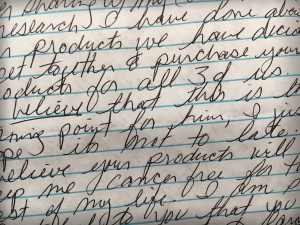 er sharing of my
research I have done about
n products we have decid
get together & purchase your
oducts for all 3 of us.
believe that this is
rning point for him, I jus
ope it is not to late.
elieve your products will
eep me cancer free for t
est of my life. I am
to you that you